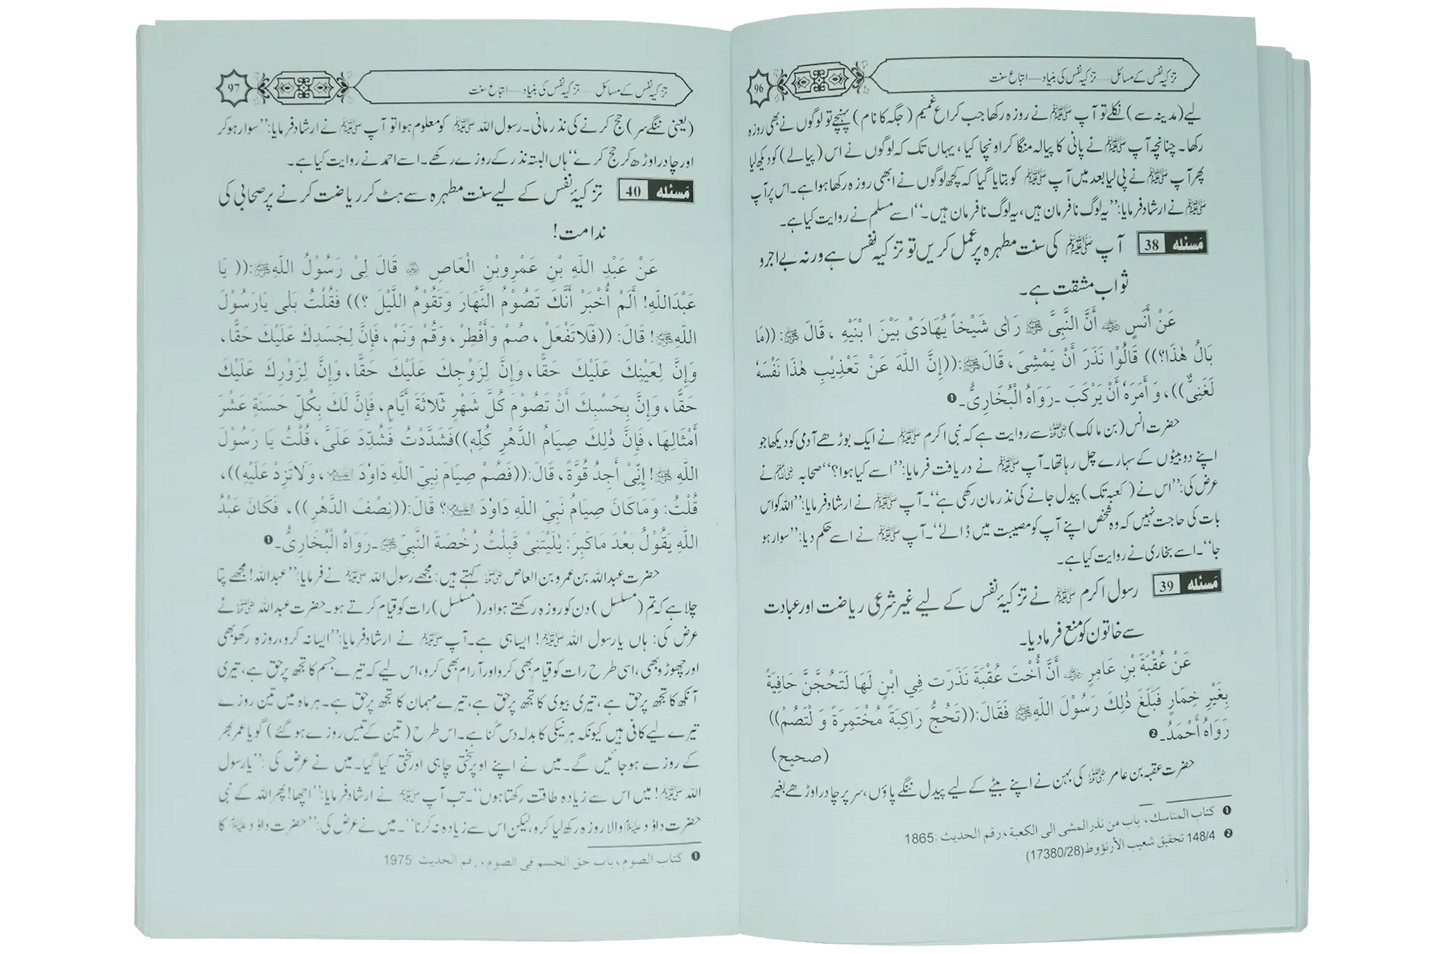 تزکیہ نفس کے مسائل — تزکیہ نفس کی بنیاد — اتباع سنت
96
لیے (مدینہ سے) نکلے تو آپ ﷺ نے روزہ رکھا جب کراع غمیم (جگہ کا نام) پہنچے تو لوگوں نے بھی روزہ
رکھا۔ چنانچہ آپ ﷺ نے پانی کا پیالہ منگا کر اونچا کیا، یہاں تک کہ لوگوں نے اس (پیالے) کو دیکھ لیا
پھر آپ ﷺ نے پی لیا بعد میں آپ ﷺ کو بتایا گیا کہ کچھ لوگوں نے ابھی روزہ رکھا ہوا ہے۔ اس پر آپ
ﷺ نے ارشاد فرمایا: ’’یہ لوگ نافرمان ہیں، یہ لوگ نافرمان ہیں۔‘‘ اسے مسلم نے روایت کیا ہے۔
مسئلہ 38 آپ ﷺ کی سنت مطہرہ پر عمل کریں تو تزکیۂ نفس ہے ورنہ بے اجر و
ثواب مشقت ہے۔
عَنْ أَنَسٍ ؓ أَنَّ النَّبِیَّ ﷺ رَای شَیْخًا یُهَادَی بَیْنَ ابْنَیْهِ ، قَالَ ﷺ: ((مَا
بَالُ هٰذَا؟)) قَالُوْا نَذَرَ أَنْ یَمْشِیَ، قَالَ ﷺ: ((إِنَّ اللّٰهَ عَنْ تَعْذِیْبِ هٰذَا نَفْسَهٗ
لَغَنِیٌّ))، وَ أَمَرَهٗ أَنْ یَرْکَبَ ۔ رَوَاهُ الْبُخَارِیُّ۔ ❶
حضرت انس (بن مالک) ؓ سے روایت ہے کہ نبی اکرم ﷺ نے ایک بوڑھے آدمی کو دیکھا جو
اپنے دو بیٹوں کے سہارے چل رہا تھا۔ آپ ﷺ نے دریافت فرمایا: ’’اسے کیا ہوا؟‘‘ صحابہ ؓ نے
عرض کی: ’’اس نے (کعبہ تک) پیدل جانے کی نذر مان رکھی ہے‘‘۔ آپ ﷺ نے ارشاد فرمایا: ’’اللہ کو اس
بات کی حاجت نہیں کہ وہ شخص اپنے آپ کو مصیبت میں ڈالے‘‘۔ آپ ﷺ نے اسے حکم دیا: ’’سوار ہو
جا‘‘۔ اسے بخاری نے روایت کیا ہے۔
مسئلہ 39 رسول اکرم ﷺ نے تزکیۂ نفس کے لیے غیر شرعی ریاضت اور عبادت
سے خاتون کو منع فرما دیا۔
عَنْ عُقْبَةَ بْنِ عَامِرٍ ؓ أَنَّ أُخْتَ عُقْبَةَ نَذَرَت فِي ابْنٍ لَهَا لَتَحُجَّنَّ حَافِیَةً
بِغَیْرِ خِمَارٍ فَبَلَغَ ذٰلِكَ رَسُوْلَ اللّٰهِ ﷺ فَقَالَ: ((تَحُجُّ رَاکِبَةً مُخْتَمِرَةً وَ لْتَصُمْ))
رَوَاهُ أَحْمَدُ۔ ❷ (صحیح)
حضرت عقبہ بن عامر ؓ کی بہن نے اپنے بیٹے کے لیے پیدل ننگے پاؤں، سر پر چادر اوڑھے بغیر
❶ کتاب المناسك ، باب من نذر المشی الی الکعبة ، رقم الحدیث :1865
❷ 148/4 تحقیق شعیب الأرنؤوط (17380/28)
تزکیہ نفس کے مسائل — تزکیہ نفس کی بنیاد — اتباع سنت
97
(یعنی ننگے سر) حج کرنے کی نذر مانی۔ رسول اللہ ﷺ کو معلوم ہوا تو آپ ﷺ نے ارشاد فرمایا: ’’سوار ہو کر
اور چادر اوڑھ کر حج کرے‘‘ ہاں البتہ نذر کے روزے رکھے۔ اسے احمد نے روایت کیا ہے۔
مسئلہ 40 تزکیۂ نفس کے لیے سنت مطہرہ سے ہٹ کر ریاضت کرنے پر صحابی کی
ندامت!
عَنْ عَبْدِ اللّٰهِ بْنِ عَمْرِو بْنِ الْعَاصِ ؓ قَالَ لِیْ رَسُوْلُ اللّٰهِ ﷺ: (( یَا
عَبْدَاللّٰهِ! أَلَمْ أُخْبَرْ أَنَّكَ تَصُوْمُ النَّهَارَ وَتَقُوْمُ اللَّیْلَ ؟)) فَقُلْتُ بَلٰی یَارَسُوْلَ
اللّٰهِ ﷺ! قَالَ: ((فَلَاتَفْعَلْ، صُمْ وَأَفْطِرْ، وَقُمْ وَنَمْ، فَإِنَّ لِجَسَدِكَ عَلَیْكَ حَقًّا،
وَإِنَّ لِعَیْنِكَ عَلَیْكَ حَقًّا، وَإِنَّ لِزَوْجِكَ عَلَیْكَ حَقًّا، وَإِنَّ لِزَوْرِكَ عَلَیْكَ
حَقًّا، وَإِنَّ بِحَسْبِكَ أَنْ تَصُوْمَ کُلَّ شَهْرٍ ثَلَاثَةَ أَیَّامٍ، فَإِنَّ لَكَ بِکُلِّ حَسَنَةٍ عَشْرَ
أَمْثَالِهَا، فَإِنَّ ذٰلِكَ صِیَامُ الدَّهْرِ کُلِّهٖ)) فَشَدَّدْتُ فَشُدِّدَ عَلَیَّ، قُلْتُ یَا رَسُوْلَ
اللّٰهِ ﷺ! إِنِّیْ أَجِدُ قُوَّةً، قَالَ: ((فَصُمْ صِیَامَ نَبِیِّ اللّٰهِ دَاوٗدَ علیہ السلام، وَلَاتَزِدْ عَلَیْهِ))،
قُلْتُ: وَمَاکَانَ صِیَامُ نَبِیِّ اللّٰهِ دَاوٗدَ علیہ السلام؟ قَالَ: ((نِصْفَ الدَّهْرِ))، فَکَانَ عَبْدُ
اللّٰهِ یَقُوْلُ بَعْدَ مَاکَبِرَ: یٰلَیْتَنِیْ قَبِلْتُ رُخْصَةَ النَّبِیِّ ﷺ۔ رَوَاهُ الْبُخَارِیُّ۔ ❶
حضرت عبداللہ بن عمرو بن العاص ؓ کہتے ہیں: مجھے رسول اللہ ﷺ نے فرمایا: ’’عبداللہ! مجھے پتا
چلا ہے کہ تم (مسلسل) دن کو روزہ رکھتے ہو اور (مسلسل) رات کو قیام کرتے ہو۔ حضرت عبداللہ ؓ نے
عرض کی: ہاں یا رسول اللہ ﷺ! ایسا ہی ہے۔ آپ ﷺ نے ارشاد فرمایا: ’’ایسا نہ کرو، روزہ رکھو بھی
اور چھوڑو بھی، اسی طرح رات کو قیام بھی کرو اور آرام بھی کرو، اس لیے کہ تیرے جسم کا تجھ پر حق ہے، تیری
آنکھ کا تجھ پر حق ہے، تیری بیوی کا تجھ پر حق ہے، تیرے مہمان کا تجھ پر حق ہے۔ ہر ماہ میں تین روزے
تیرے لیے کافی ہیں کیونکہ ہر نیکی کا بدلہ دس گنا ہے۔ اس طرح (تین کے تیس روزے ہو گئے) گویا عمر بھر
کے روزے ہو جائیں گے۔ میں نے اپنے اوپر سختی چاہی اور سختی کیا گیا۔ میں نے عرض کی: ’’یا رسول
اللہ ﷺ! میں اس سے زیادہ طاقت رکھتا ہوں‘‘۔ تب آپ ﷺ نے ارشاد فرمایا: ’’اچھا! پھر اللہ کے نبی
حضرت داؤد علیہ السلام والا روزہ رکھ لیا کرو، لیکن اس سے زیادہ نہ کرنا‘‘۔ میں نے عرض کی: ’’حضرت داؤد علیہ السلام کا
❶ کتاب الصوم ، باب حق الجسم فی الصوم ، رقم الحدیث :1975